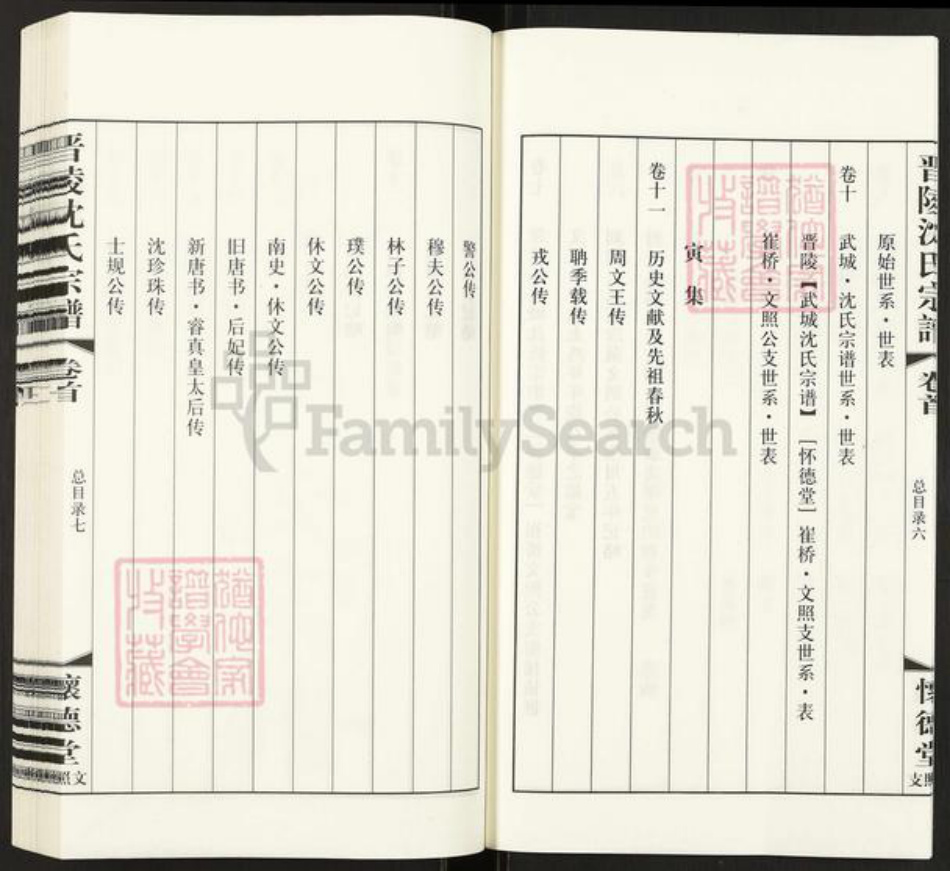 晋陵沈氏宗谱
卷首
总目录六
怀德堂
文照支
原始世系·世表
卷十 武城·沈氏宗谱世系·世表
晋陵【武城沈氏宗谱】［怀德堂］崔桥·文照支世系·表
崔桥·文照公支世系·世表
寅集
卷十一 历史文献及先祖春秋
周文王传
聃季载传
戎公传
警公传
穆夫公传
林子公传
璞公传
休文公传
南史·休文公传
旧唐书·后妃传
新唐书·睿真皇太后传
沈珍珠传
士规公传
晋陵沈氏宗谱
卷首
总目录七
怀德堂
文照
猶他家譜學會收藏
猶他家譜學會收藏
FamilySearch